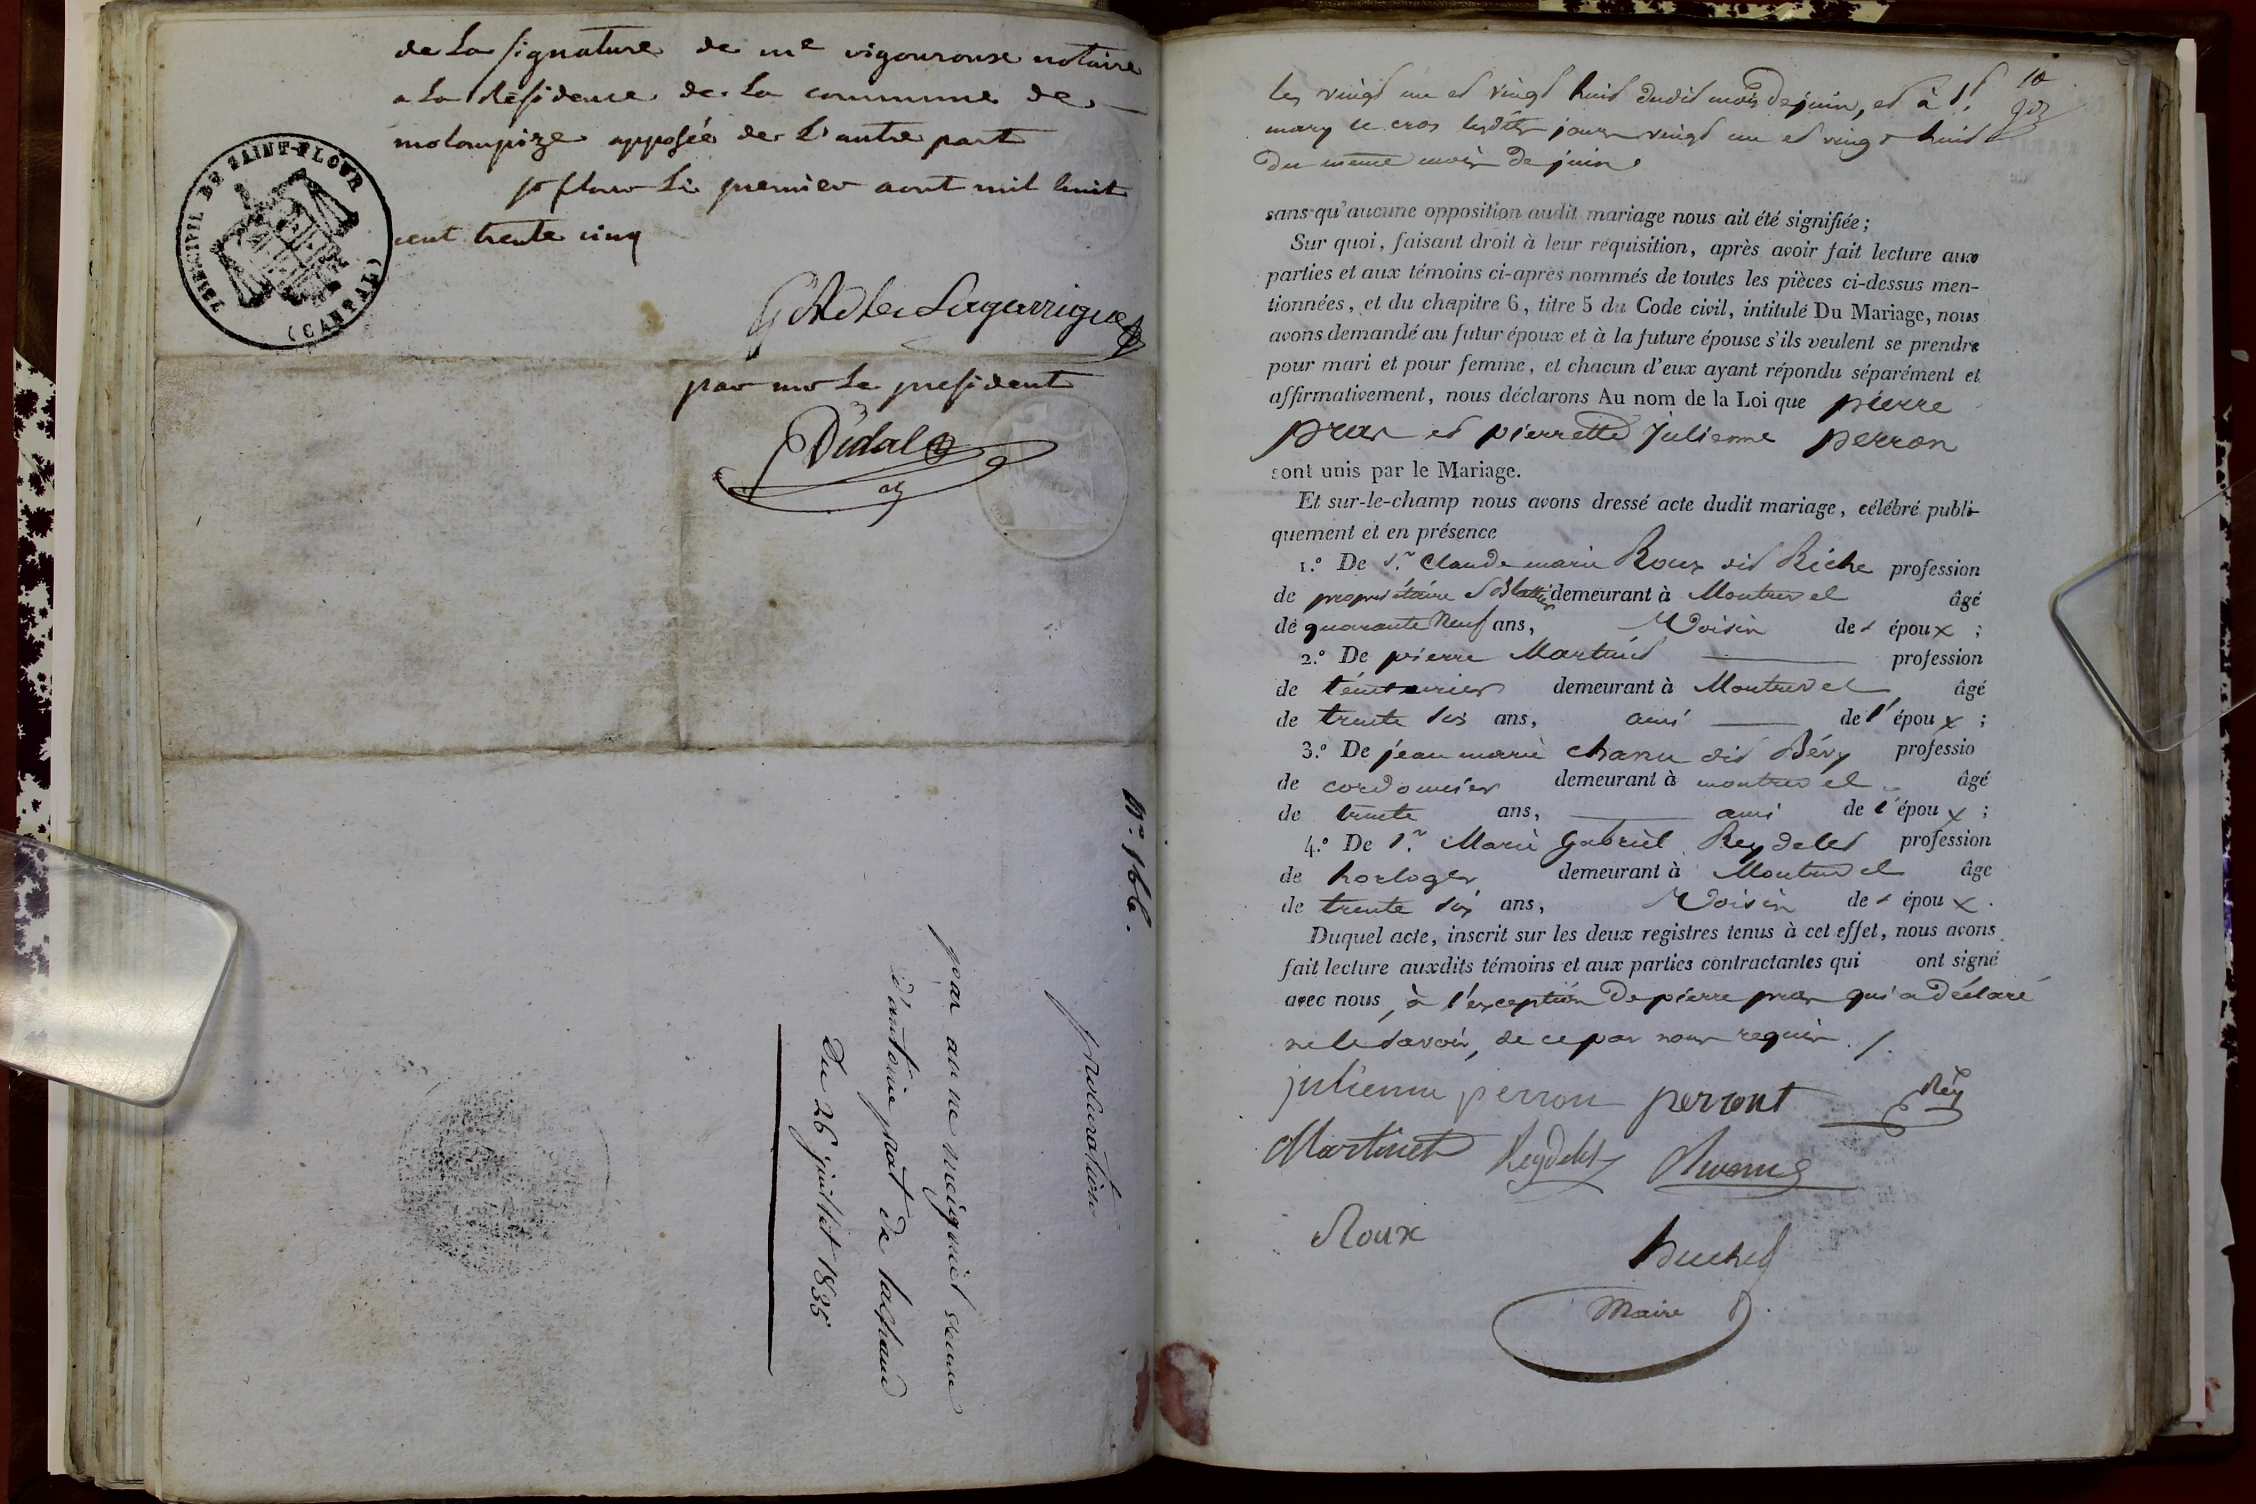 de la signature de me vigouroux notaire
a la résidence de la commune de
molompize apposée de l'autre part
st flour le premier aout mil huit
cent trente cinq
TRIB CIVIL DE SAINT-FLOUR
(CANTAL)
Lagarrigue
par mr le president
Vidal
N.º 166.
procuration
par anne meigniel veuve
d'antoine prat de
du 26 juillet 1835
10
les vingt un et vingt huit dudit mois de juin, et à St
mary le cros lesdits jours vingt un et vingt huit
du même mois de juin
sans qu'aucune opposition audit mariage nous ait été signifiée;
Sur quoi, faisant droit à leur réquisition, après avoir fait lecture aux
parties et aux témoins ci-après nommés de toutes les pièces ci-dessus men-
tionnées, et du chapitre 6, titre 5 du Code civil, intitulé Du Mariage, nous
avons demandé au futur époux et à la future épouse s'ils veulent se prendre
pour mari et pour femme, et chacun d'eux ayant répondu séparément et
affirmativement, nous déclarons Au nom de la Loi que pierre
pras et pierrette Julienne perron
sont unis par le Mariage.
Et sur-le-champ nous avons dressé acte dudit mariage, célébré publi-
quement et en présence
1.º De Sr. Claude marie Roux dit Riche profession
de propriétaire demeurant à Montrevel âgé
de quarante neuf ans, Voisin des époux ;
2.º De pierre Martinet profession
de teinturier demeurant à Montrevel âgé
de trente six ans, ami de l'époux ;
3.º De jean marie chanu dit Béry professio
de cordonnier demeurant à montrevel âgé
de trente ans, ami de l'époux ;
4.º De Sr. Marie Gabriel Reydelet profession
de horloger demeurant à Montrevel âge
de trente six ans, Voisin des époux.
Duquel acte, inscrit sur les deux registres tenus à cet effet, nous avons
fait lecture auxdits témoins et aux parties contractantes qui ont signé
avec nous, à l'exception de pierre pras qui a déclaré
ne le savoir, de ce par nous requis ./.
julienne perron perront Réy
Martinet Reydelet
Roux
Buchet
Maire